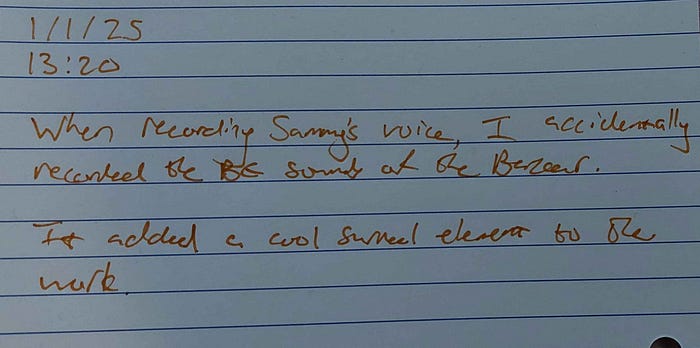 1/1/25
13:20
When recording Sammy's voice, I accidentally
recorded the BG sounds at the Bazaar.
It added a cool surreal element to the
work.